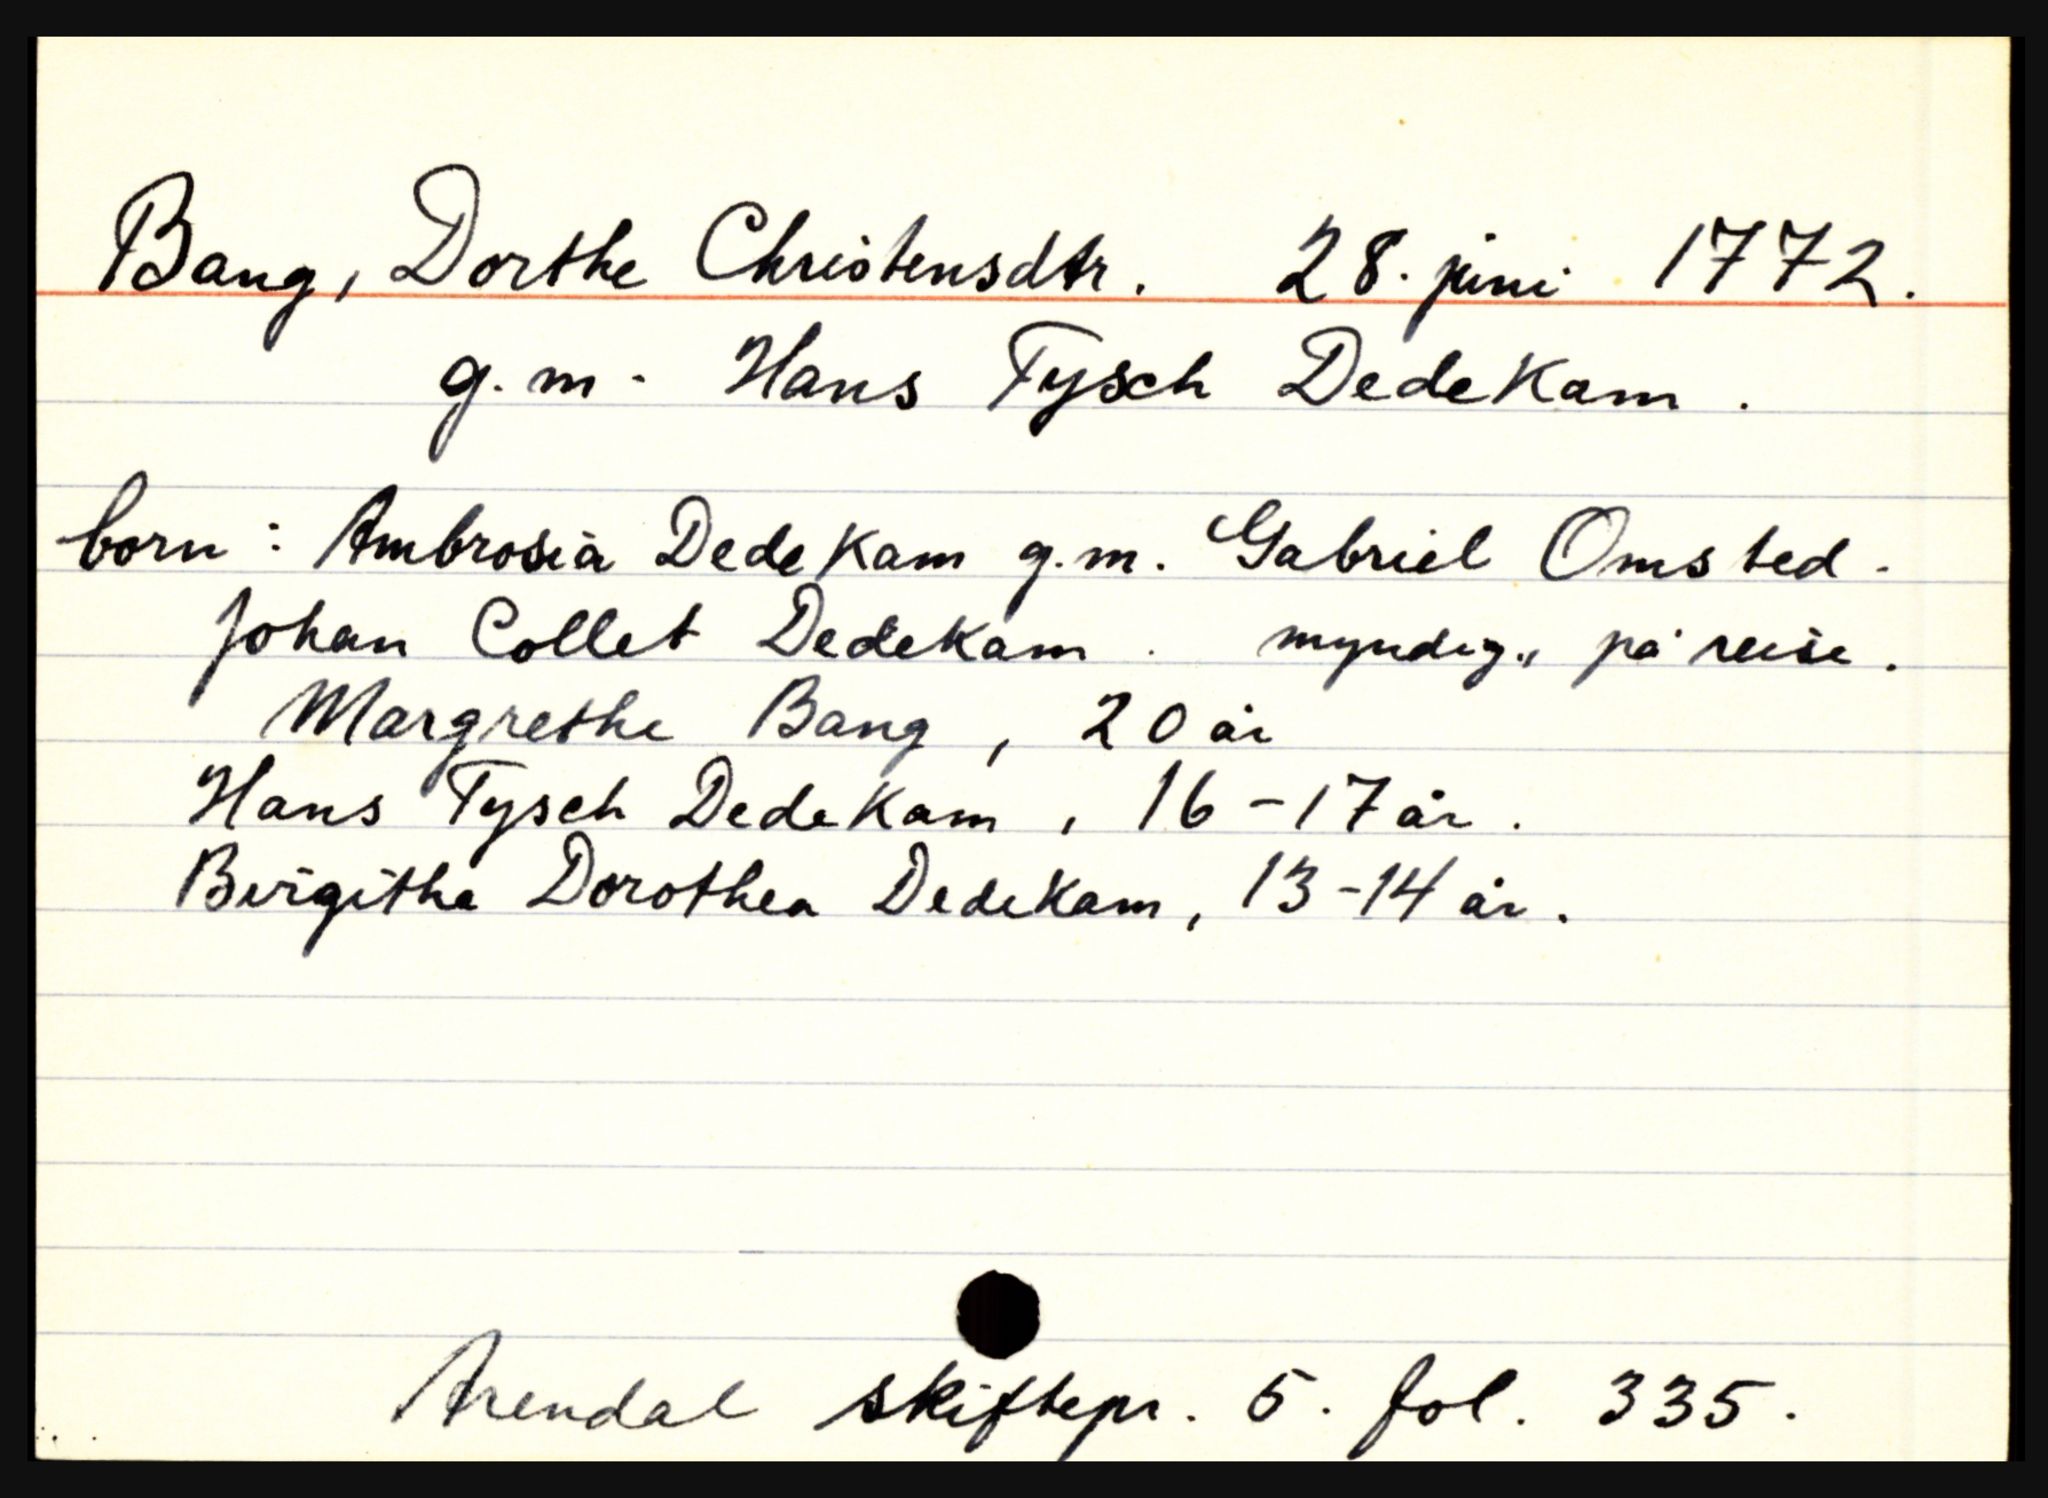 Bang, Dorthe Christensdtr. 28. juni 1772.
g.m. Hans Tysch Dedekam.
born: Ambrosia Dedekam g.m. Gabriel Omsted.
Johan Collet Dedekam. myndig, på reise.
Margrethe Bang, 20 år
Hans Tysch Dedekam, 16-17 år.
Birgitha Dorothea Dedekam, 13-14 år.
Arendal skiftepr. 5. fol. 335.